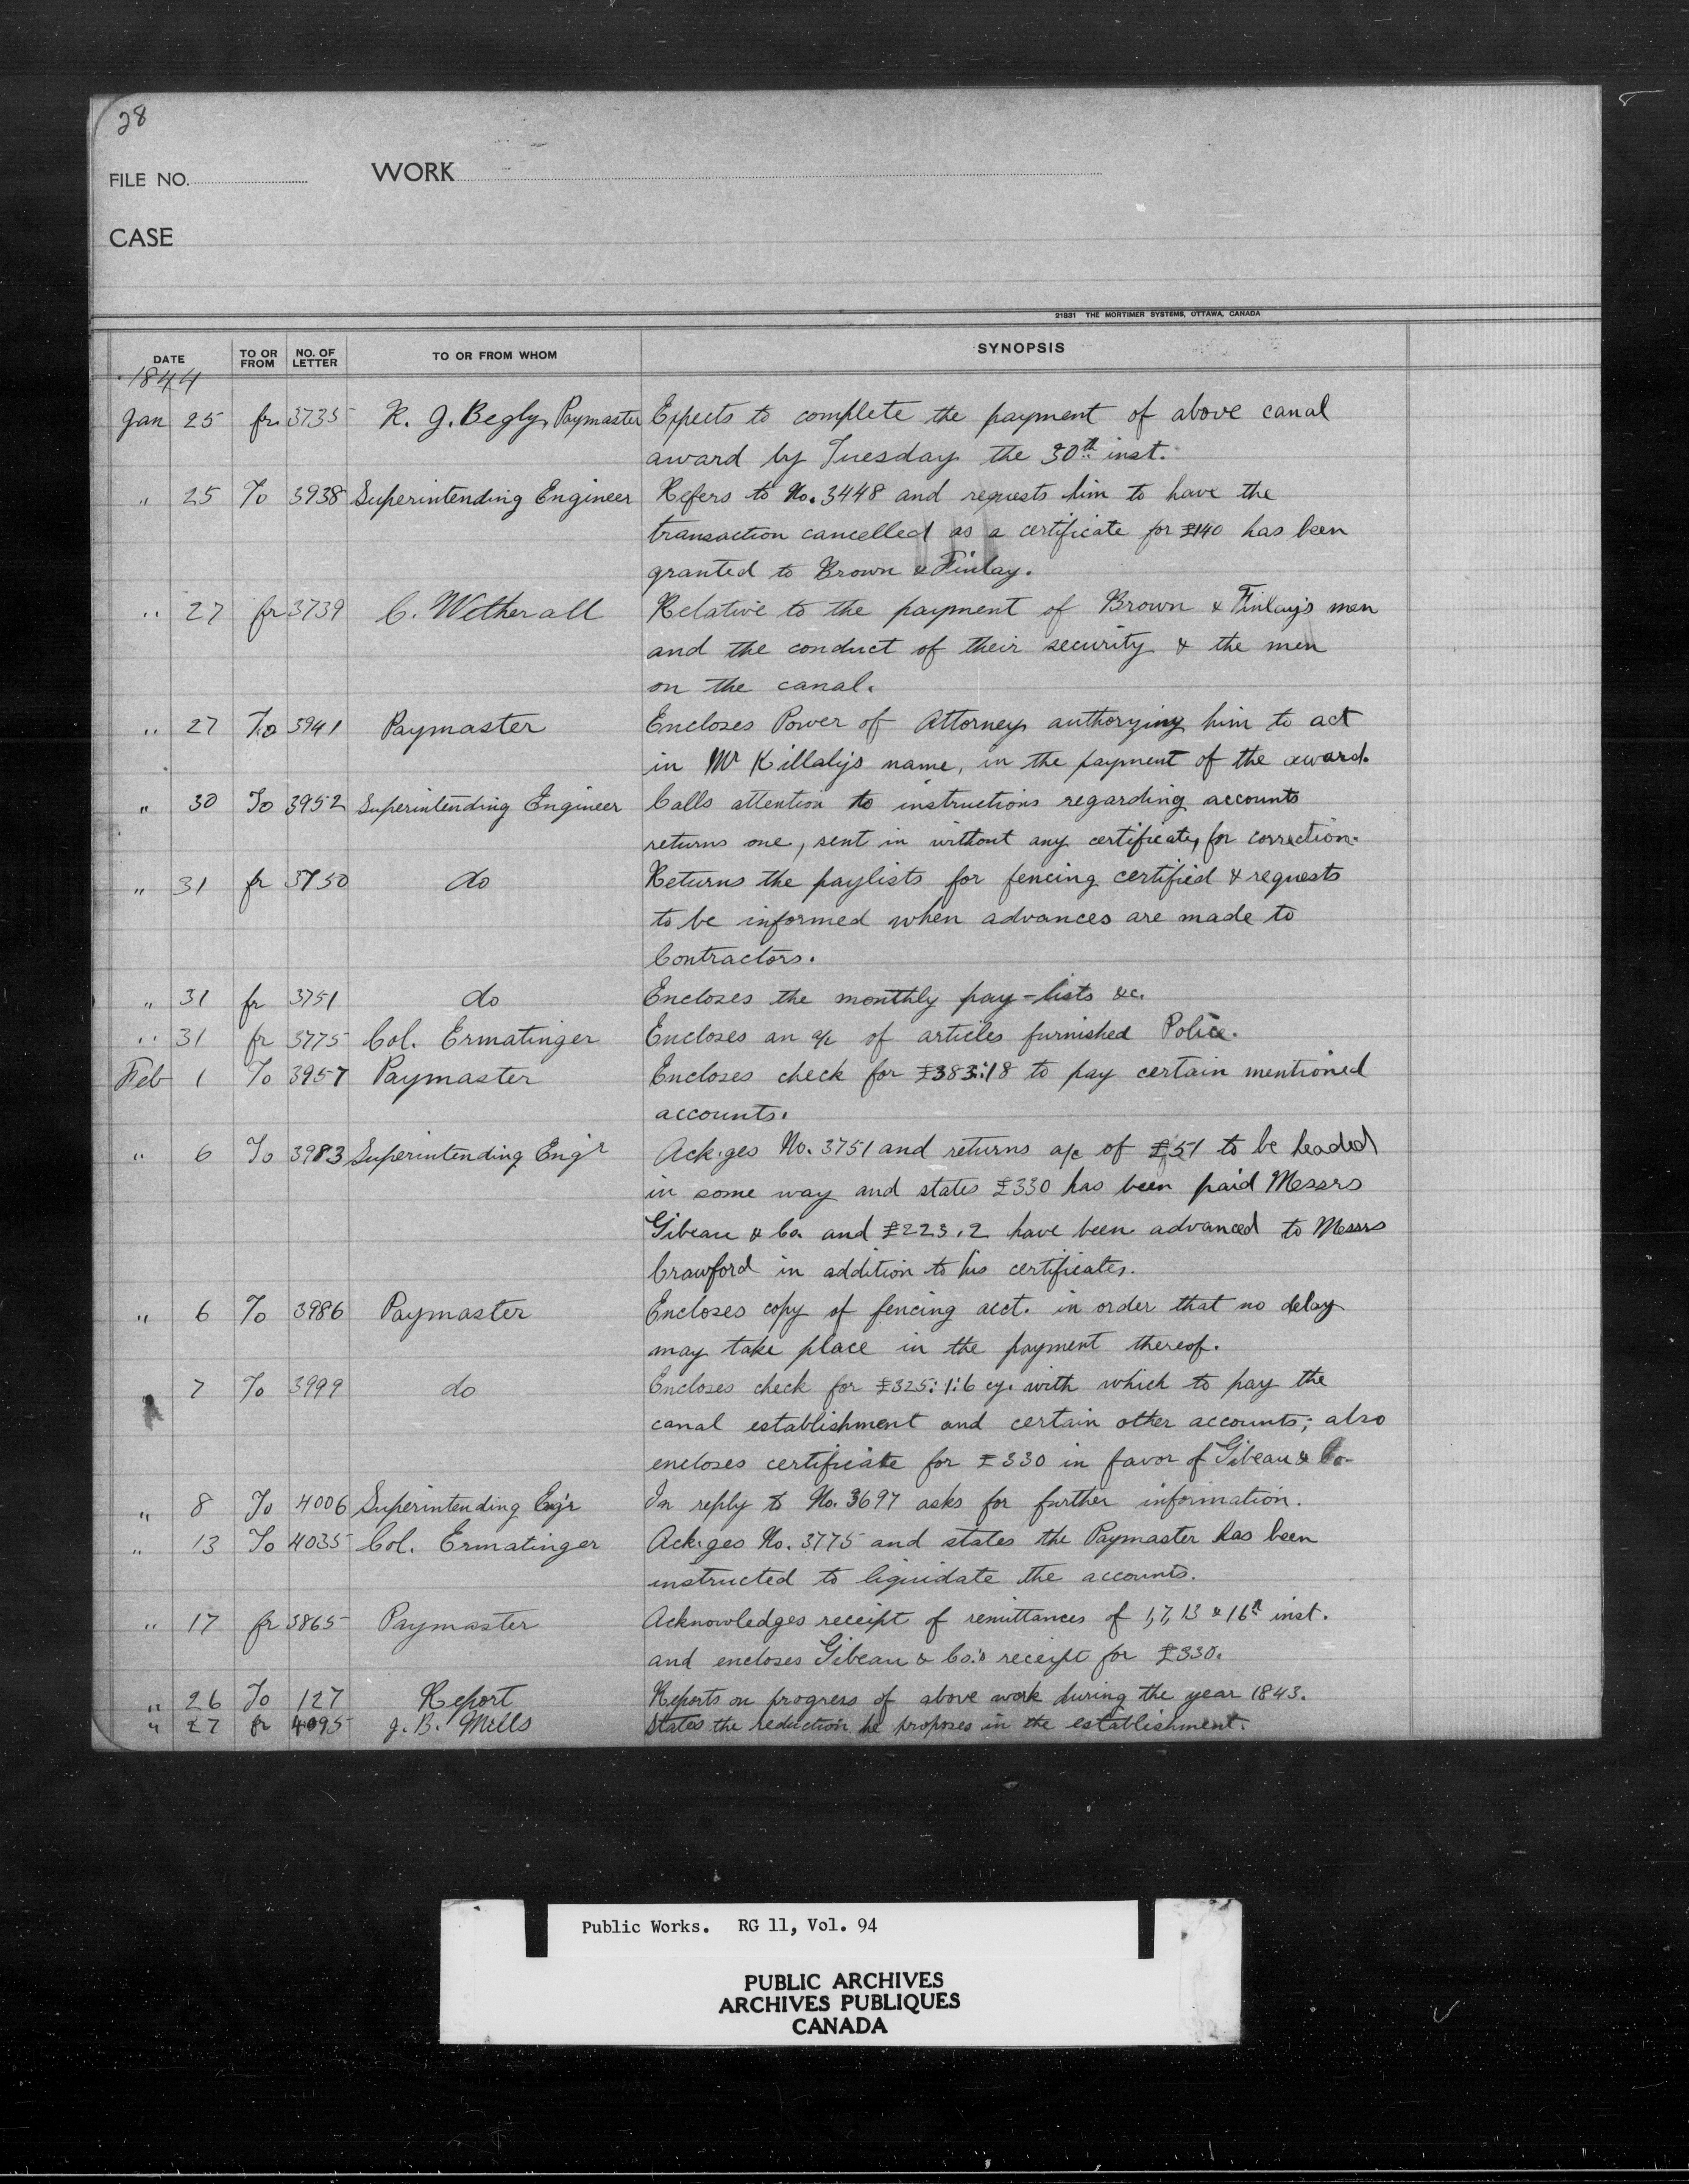 28
FILE NO. WORK
CASE
21831 THE MORTIMER SYSTEMS, OTTAWA, CANADA
DATE TO OR FROM NO. OF LETTER TO OR FROM WHOM SYNOPSIS
1844
Jan 25 fr. 3735 K. J. Begly, Paymaster Expects to complete the payment of above canal
award by Tuesday the 30th inst.
" 25 To 3938 Superintending Engineer Refers to No. 3448 and requests him to have the
transaction cancelled as a certificate for £140 has been
granted to Brown & Finlay.
" 27 fr 3739 C. Wetherall Relative to the payment of Brown & Finlay's men
and the conduct of their security & the men
on the canal.
" 27 To 3941 Paymaster Encloses Power of Attorney authorying him to act
in Mr Killaly's name, in the payment of the award.
" 30 To 3952 Superintending Engineer Calls attention to instructions regarding accounts
returns one, sent in without any certificate, for correction.
" 31 fr 3750 do Returns the paylists for fencing certified & requests
to be informed when advances are made to
Contractors.
" 31 fr 3751 do Encloses the monthly pay-lists &c.
" 31 fr 3775 Col. Ermatinger Encloses an a/c of articles furnished Police.
Feb 1 To 3957 Paymaster Encloses check for £383:18 to pay certain mentioned
accounts.
" 6 To 3983 Superintending Engr Ack.ges No. 3751 and returns a/c of £51 to be headed
in some way and states £330 has been paid Messrs
Gibeau & Co. and £223.2 have been advanced to Messrs
Crawford in addition to his certificates.
" 6 To 3986 Paymaster Encloses copy of fencing acct. in order that no delay
may take place in the payment thereof.
" 7 To 3999 do Encloses check for £325:1:6 cy. with which to pay the
canal establishment and certain other accounts; also
encloses certificate for £330 in favor of Gibeau & Co.
" 8 To 4006 Superintending Eng'r In reply to No. 3697 asks for further information.
" 13 To 4035 Col. Ermatinger Ack.ges No. 3775 and states the Paymaster has been
instructed to liquidate the accounts.
" 17 fr 3865 Paymaster Acknowledges receipt of remittances of 1, 7, 13 & 16th inst.
and encloses Gibeau & Co.'s receipt for £330.
" 26 To 127 Report Reports on progress of above work during the year 1843.
" 27 fr 4095 J. B. Mills States the reduction he proposes in the establishment.
Public Works. RG 11, Vol. 94
PUBLIC ARCHIVES
ARCHIVES PUBLIQUES
CANADA